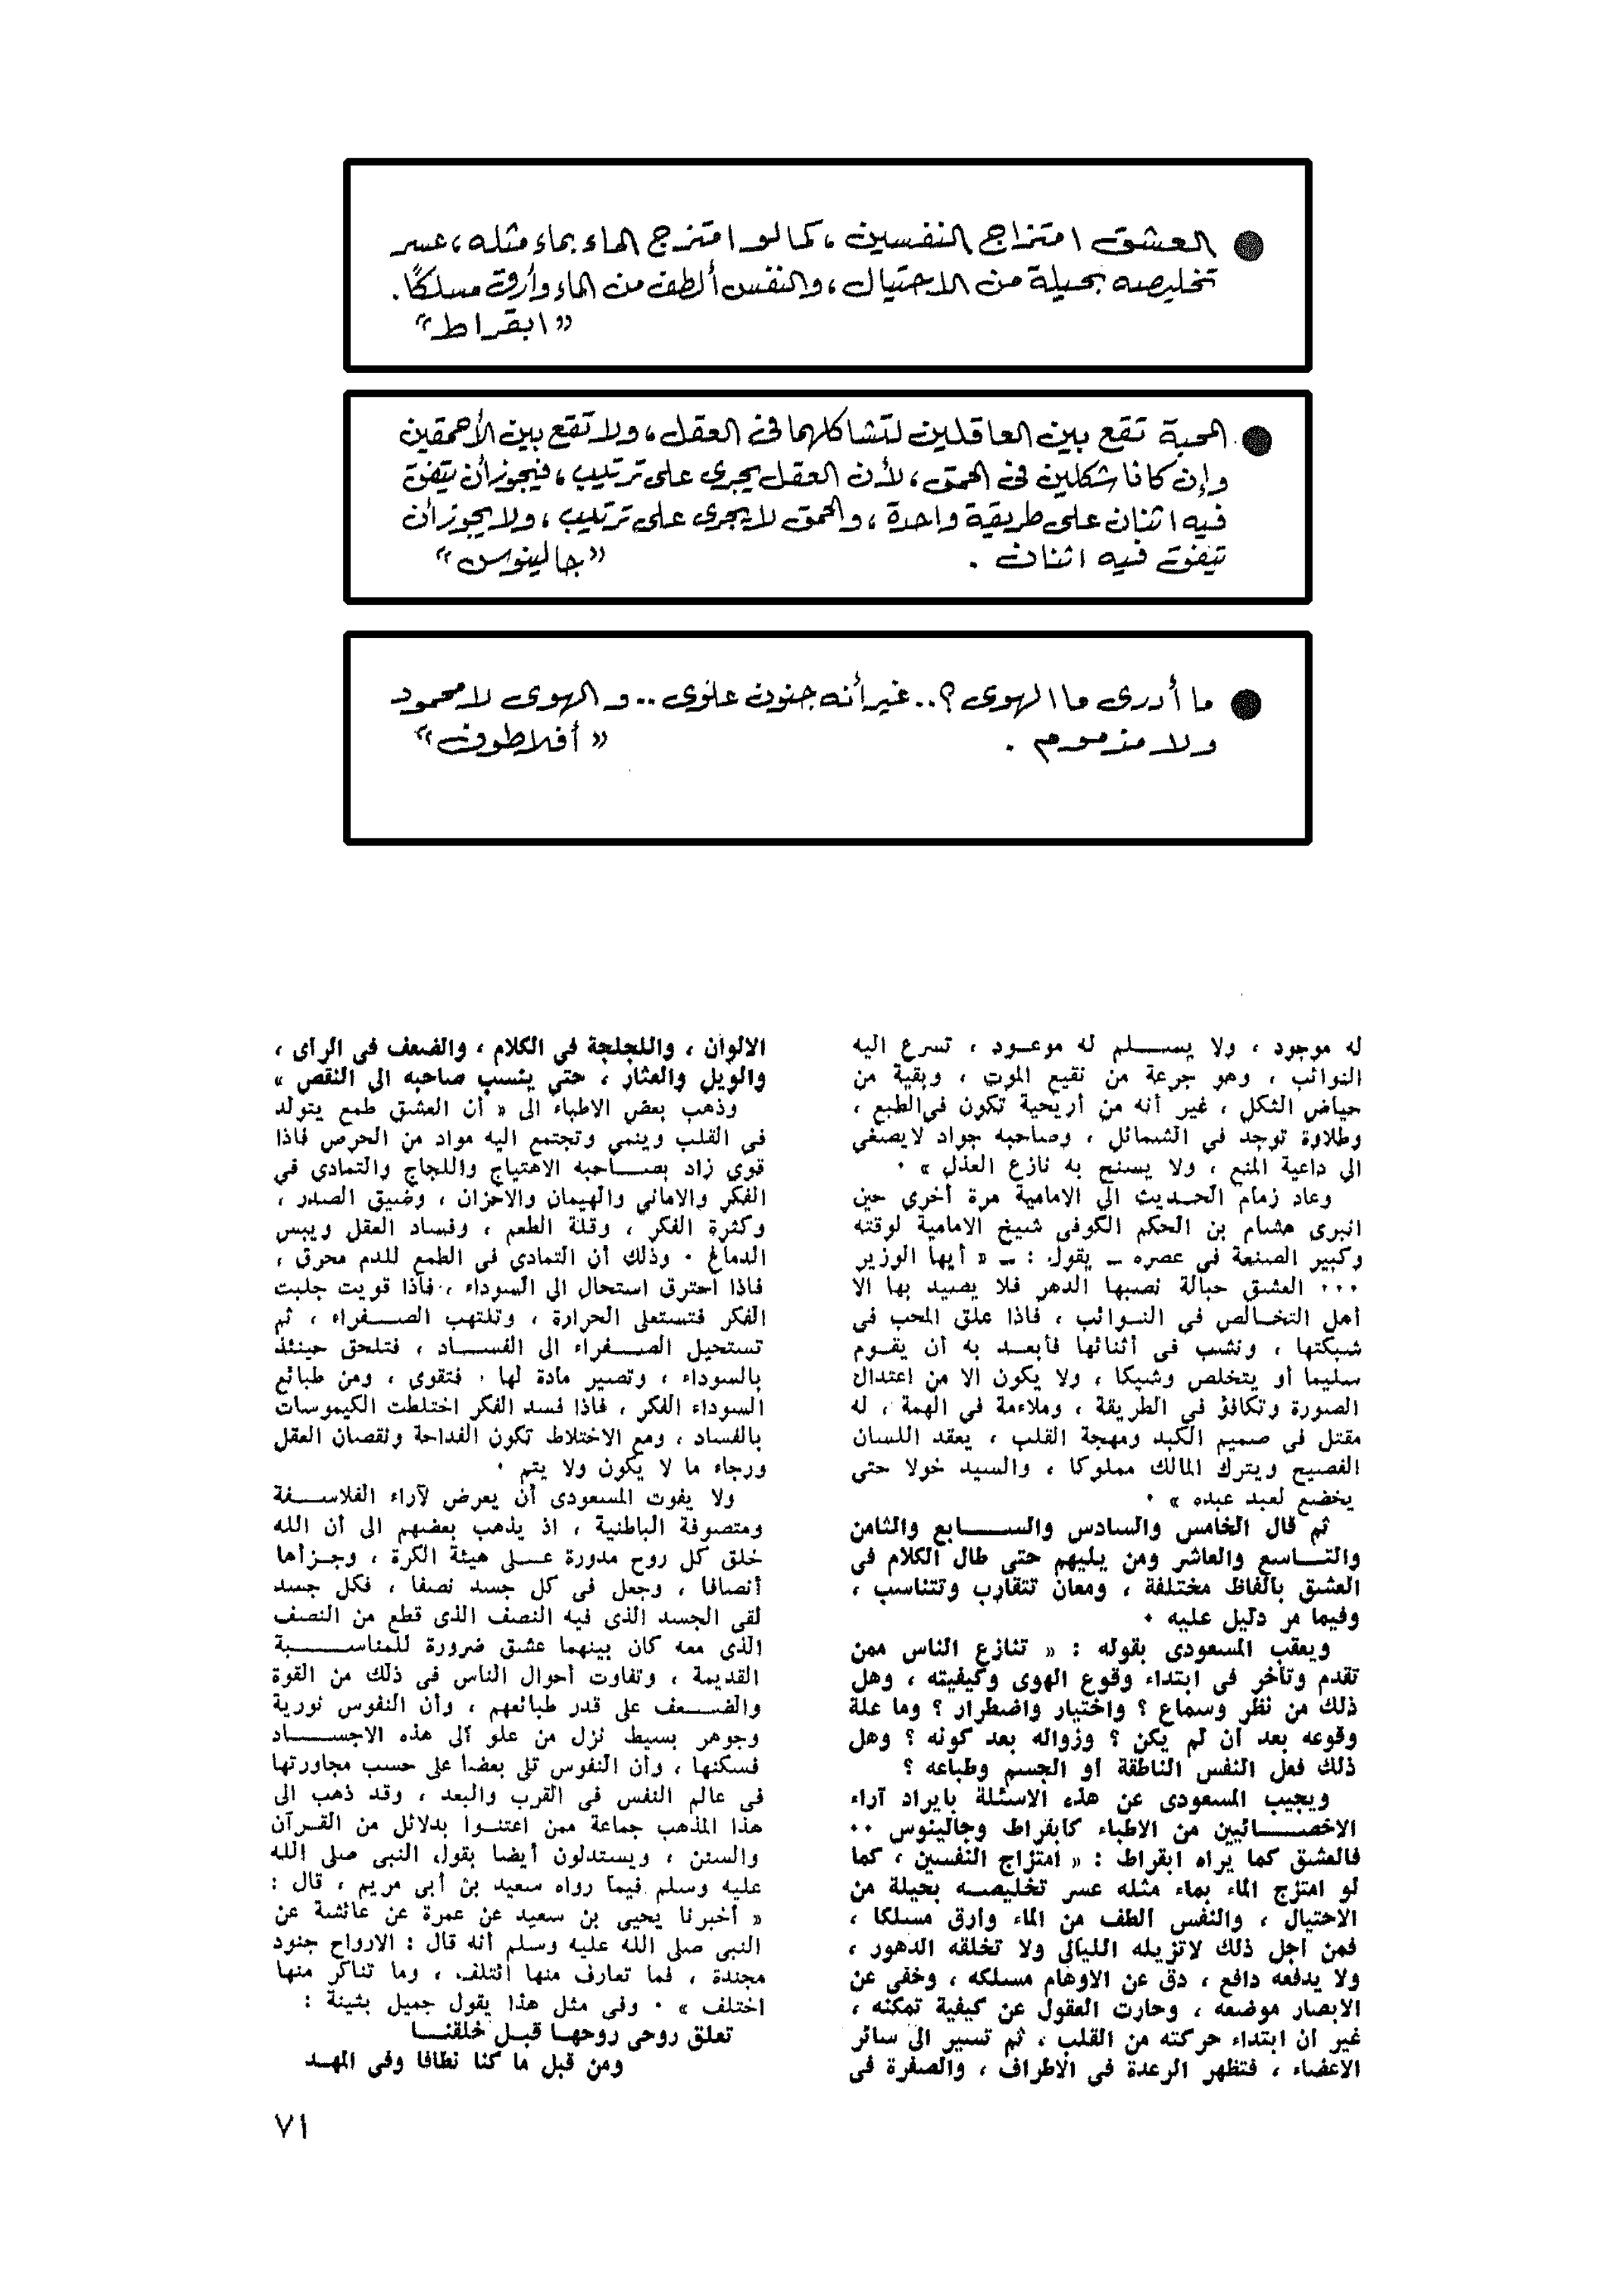 ● العشق امتزاج النفسين ، كما لو امتزج الماء بماء مثله ، عسر
تخليصه بحيلة من الاحتيال ، والنفس ألطف من الماء وأرق مسلكًا .
« ابقراط »
● المحبة تقع بين العاقلين لتشاكلهما فى العقل ، ولا تقع بين الأحمقين
وإن كانا شكلين فى الحمق ، لأن العقل يجرى على ترتيب ، فيجوز أن يتفق
فيه اثنان على طريقة واحدة ، والحمق لا يجرى على ترتيب ، ولا يجوز أن
يتفق فيه اثنان . « جالينوس »
● ما أدرى ما الهوى ؟ .. غير أنه جنون علوى .. و الهوى لا محمود
ولا مذموم . « أفلاطون »
له موجود ، ولا يسلم له موعود ، تسرع اليه
النوائب ، وهو جرعة من نقيع الموت ، وبقية من
حياض الثكل ، غير أنه من أريحية تكون فى الطبع ،
وطلاوة توجد فى الشمائل ، وصاحبه جواد لايصغى
الى داعية المنع ، ولا يسنح به نازع العذل » ٠
وعاد زمام الحديث الى الامامية مرة أخرى حين
انبرى هشام بن الحكم الكوفى شيخ الامامية لوقته
وكبير الصنعة فى عصره ـ يقول : ـ « أيها الوزير
٠٠٠ العشق حبالة نصبها الدهر فلا يصيد بها الا
أهل التخالص فى النوائب ، فاذا علق المحب فى
شبكتها ، ونشب فى أثنائها فأبعد به أن يقوم
سليما أو يتخلص وشيكا ، ولا يكون الا من اعتدال
الصورة وتكافؤ فى الطريقة ، وملاءمة فى الهمة ، له
مقتل فى صميم الكبد ومهجة القلب ، يعقد اللسان
الفصيح ويترك المالك مملوكا ، والسيد خولا حتى
يخضع لعبد عبده » ٠
ثم قال الخامس والسادس والسابع والثامن
والتاسع والعاشر ومن يليهم حتى طال الكلام فى
العشق بألفاظ مختلفة ، ومعان تتقارب وتتناسب ،
وفيما مر دليل عليه ٠
ويعقب المسعودى بقوله : « تنازع الناس ممن
تقدم وتأخر فى ابتداء وقوع الهوى وكيفيته ، وهل
ذلك من نظر وسماع ؟ واختيار واضطرار ؟ وما علة
وقوعه بعد أن لم يكن ؟ وزواله بعد كونه ؟ وهل
ذلك فعل النفس الناطقة أو الجسم وطباعه ؟
ويجيب المسعودى عن هذه الاسئلة بايراد آراء
الاخصائيين من الاطباء كابقراط وجالينوس ٠٠
فالعشق كما يراه ابقراط : « امتزاج النفسين ، كما
لو امتزج الماء بماء مثله عسر تخليصه بحيلة من
الاحتيال ، والنفس الطف من الماء وأرق مسلكا ،
فمن أجل ذلك لاتزيله الليالى ولا تخلقه الدهور ،
ولا يدفعه دافع ، دق عن الاوهام مسلكه ، وخفى عن
الابصار موضعه ، وحارت العقول عن كيفية تمكنه ،
غير أن ابتداء حركته من القلب ، ثم تسير الى سائر
الاعضاء ، فتظهر الرعدة فى الاطراف ، والصفرة فى
الالوان ، واللجلجة فى الكلام ، والضعف فى الرأى ،
والويل والعثار ، حتى ينسب صاحبه الى النقص »
وذهب بعض الاطباء الى « أن العشق طمع يتولد
فى القلب وينمى وتجتمع اليه مواد من الحرص فاذا
قوى زاد بصاحبه الاهتياج واللجاج والتمادى فى
الفكر والامانى والهيمان والاحزان ، وضيق الصدر ،
وكثرة الفكر ، وقلة الطعم ، وفساد العقل ويبس
الدماغ ٠ وذلك أن التمادى فى الطمع للدم محرق ،
فاذا احترق استحال الى السوداء ، فاذا قويت جلبت
الفكر فتستعلى الحرارة ، وتلتهب الصفراء ، ثم
تستحيل الصفراء الى الفساد ، فتلحق حينئذ
بالسوداء ، وتصير مادة لها ٠ فتقوى ، ومن طبائع
السوداء الفكر ، فاذا فسد الفكر اختلطت الكيموسات
بالفساد ، ومع الاختلاط تكون الفداحة ونقصان العقل
ورجاء ما لا يكون ولا يتم ٠
ولا يفوت المسعودى أن يعرض لآراء الفلاسفة
ومتصوفة الباطنية ، اذ يذهب بعضهم الى أن الله
خلق كل روح مدورة على هيئة الكرة ، وجزأها
أنصافا ، وجعل فى كل جسد نصفا ، فكل جسد
لقى الجسد الذى فيه النصف الذى قطع من النصف
الذى معه كان بينهما عشق ضرورة للمناسبة
القديمة ، وتفاوت أحوال الناس فى ذلك من القوة
والضعف على قدر طبائعهم ، وأن النفوس نورية
وجوهر بسيط نزل من علو الى هذه الاجساد
فسكنها ، وأن النفوس تلى بعضا على حسب مجاورتها
فى عالم النفس فى القرب والبعد ، وقد ذهب الى
هذا المذهب جماعة ممن اعتنوا بدلائل من القرآن
والسنن ، ويستدلون أيضا بقول النبى صلى الله
عليه وسلم فيما رواه سعيد بن أبى مريم ، قال :
« أخبرنا يحيى بن سعيد عن عمرة عن عائشة عن
النبى صلى الله عليه وسلم أنه قال : الارواح جنود
مجندة ، فما تعارف منها ائتلف ، وما تناكر منها
اختلف » ٠ وفى مثل هذا يقول جميل بثينة :
تعلق روحى روحها قبل خلقنا
ومن قبل ما كنا نطافا وفى المهد
٧١